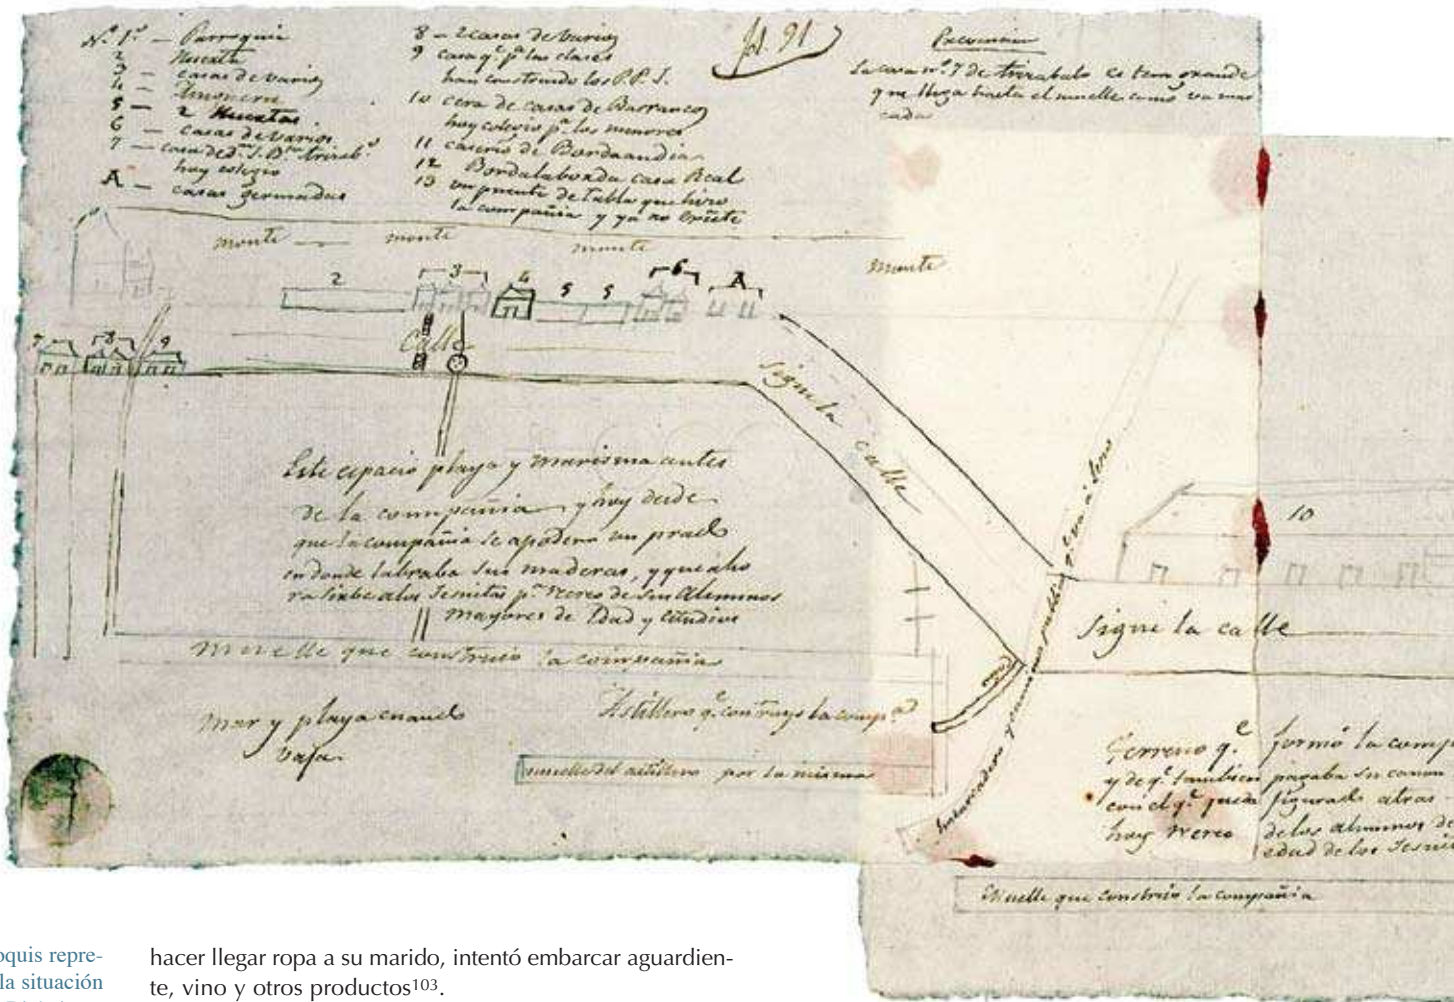 N.º 1.º — Parroquia
2 Huerta
3 — casas de varios
4 —
5 — 2 Huertas
6 — casas de varios
7 — casa de
hoy colegio
A — casas
8 — 2 casas de varios
9 casa q.e p.a las clases
han construido los P.P. J.
10 cera de casas de Barranco
hoy colegio p.a los menores
11 caserio de Bordaandia
12 Bordalaborda casa Real
13 un puente de tabla que hizo
la compañia y ya no existe
fol. 91
Prevencion
La casa n.º 7 de es tan grande
que llega hasta el muelle como va mar
cada
monte — monte monte
monte
2 3 4 5 5 6 A
7 8 9
Calle
sigue la calle
Este espacio playa y marisma antes
de la compañia y hoy desde
que la compañia se apodero un prado
en donde labraba sus maderas, y que aho
ra sirbe a los Jesuitas p.a recreo de sus Alumnos
mayores de Edad y estudios
Muelle que construio la compañia
mar y playa cuando
baja
Astillero q.e contruyo la comp.a
muelle del astillero por la misma
Embarcadero y camino publico q.e va a Lezo
10
sigue la calle
Terreno q.e formó la comp
y de q.e tambien pagaba su canon
con el q.e queda figurado atras
hoy recreo de los alumnos de
edad de los Jesui
Muelle que construio la compañia
oquis repre-
la situación
hacer llegar ropa a su marido, intentó embarcar aguardien-
te, vino y otros productos103.